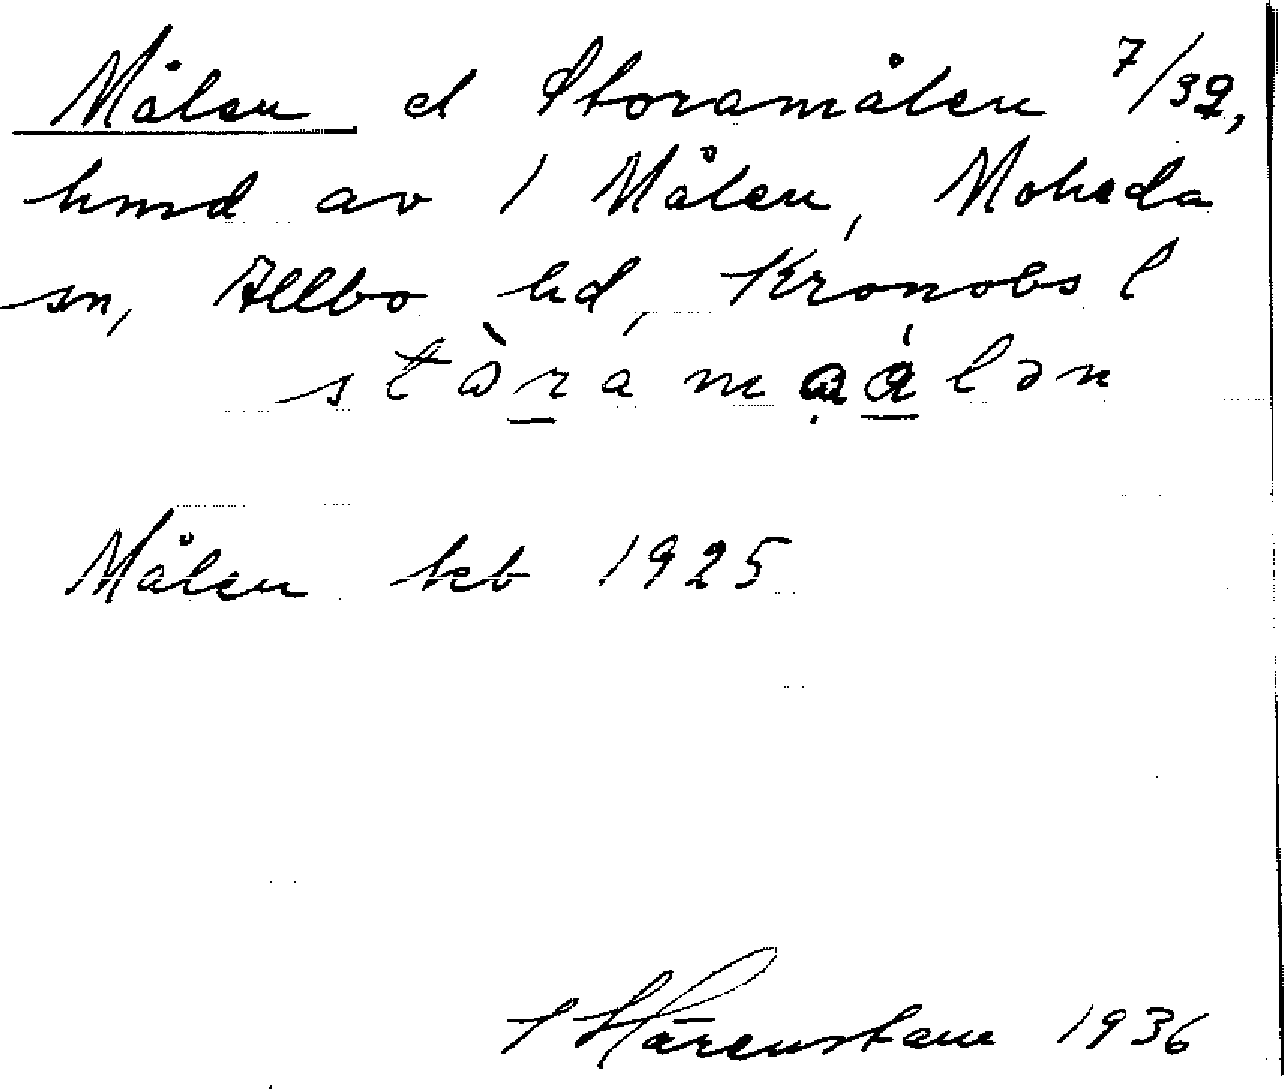 Målen el Storamålen 7/32,
hmd av 1 Målen, Moheda
sn, Allbo hd, Kronobs l
stòramaálən
Målen kb 1925
1936